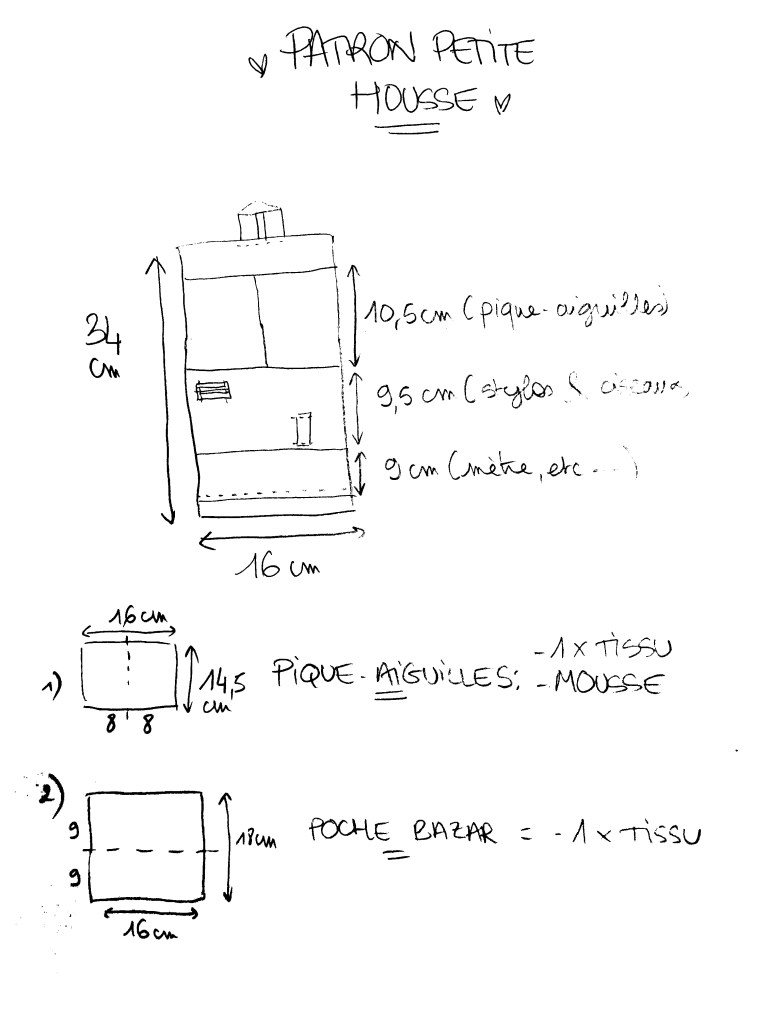 PATRON PETITE
HOUSSE
34
cm
10,5cm (pique-aiguilles)
9,5 cm (stylos & ciseaux,
9 cm (mètre, etc ...)
16 cm
16cm
1)
14,5
cm
8 8
PIQUE-AIGUILLES:
- 1 x TISSU
- MOUSSE
2)
9
9
18cm
16cm
POCHE BAZAR = - 1 x TISSU